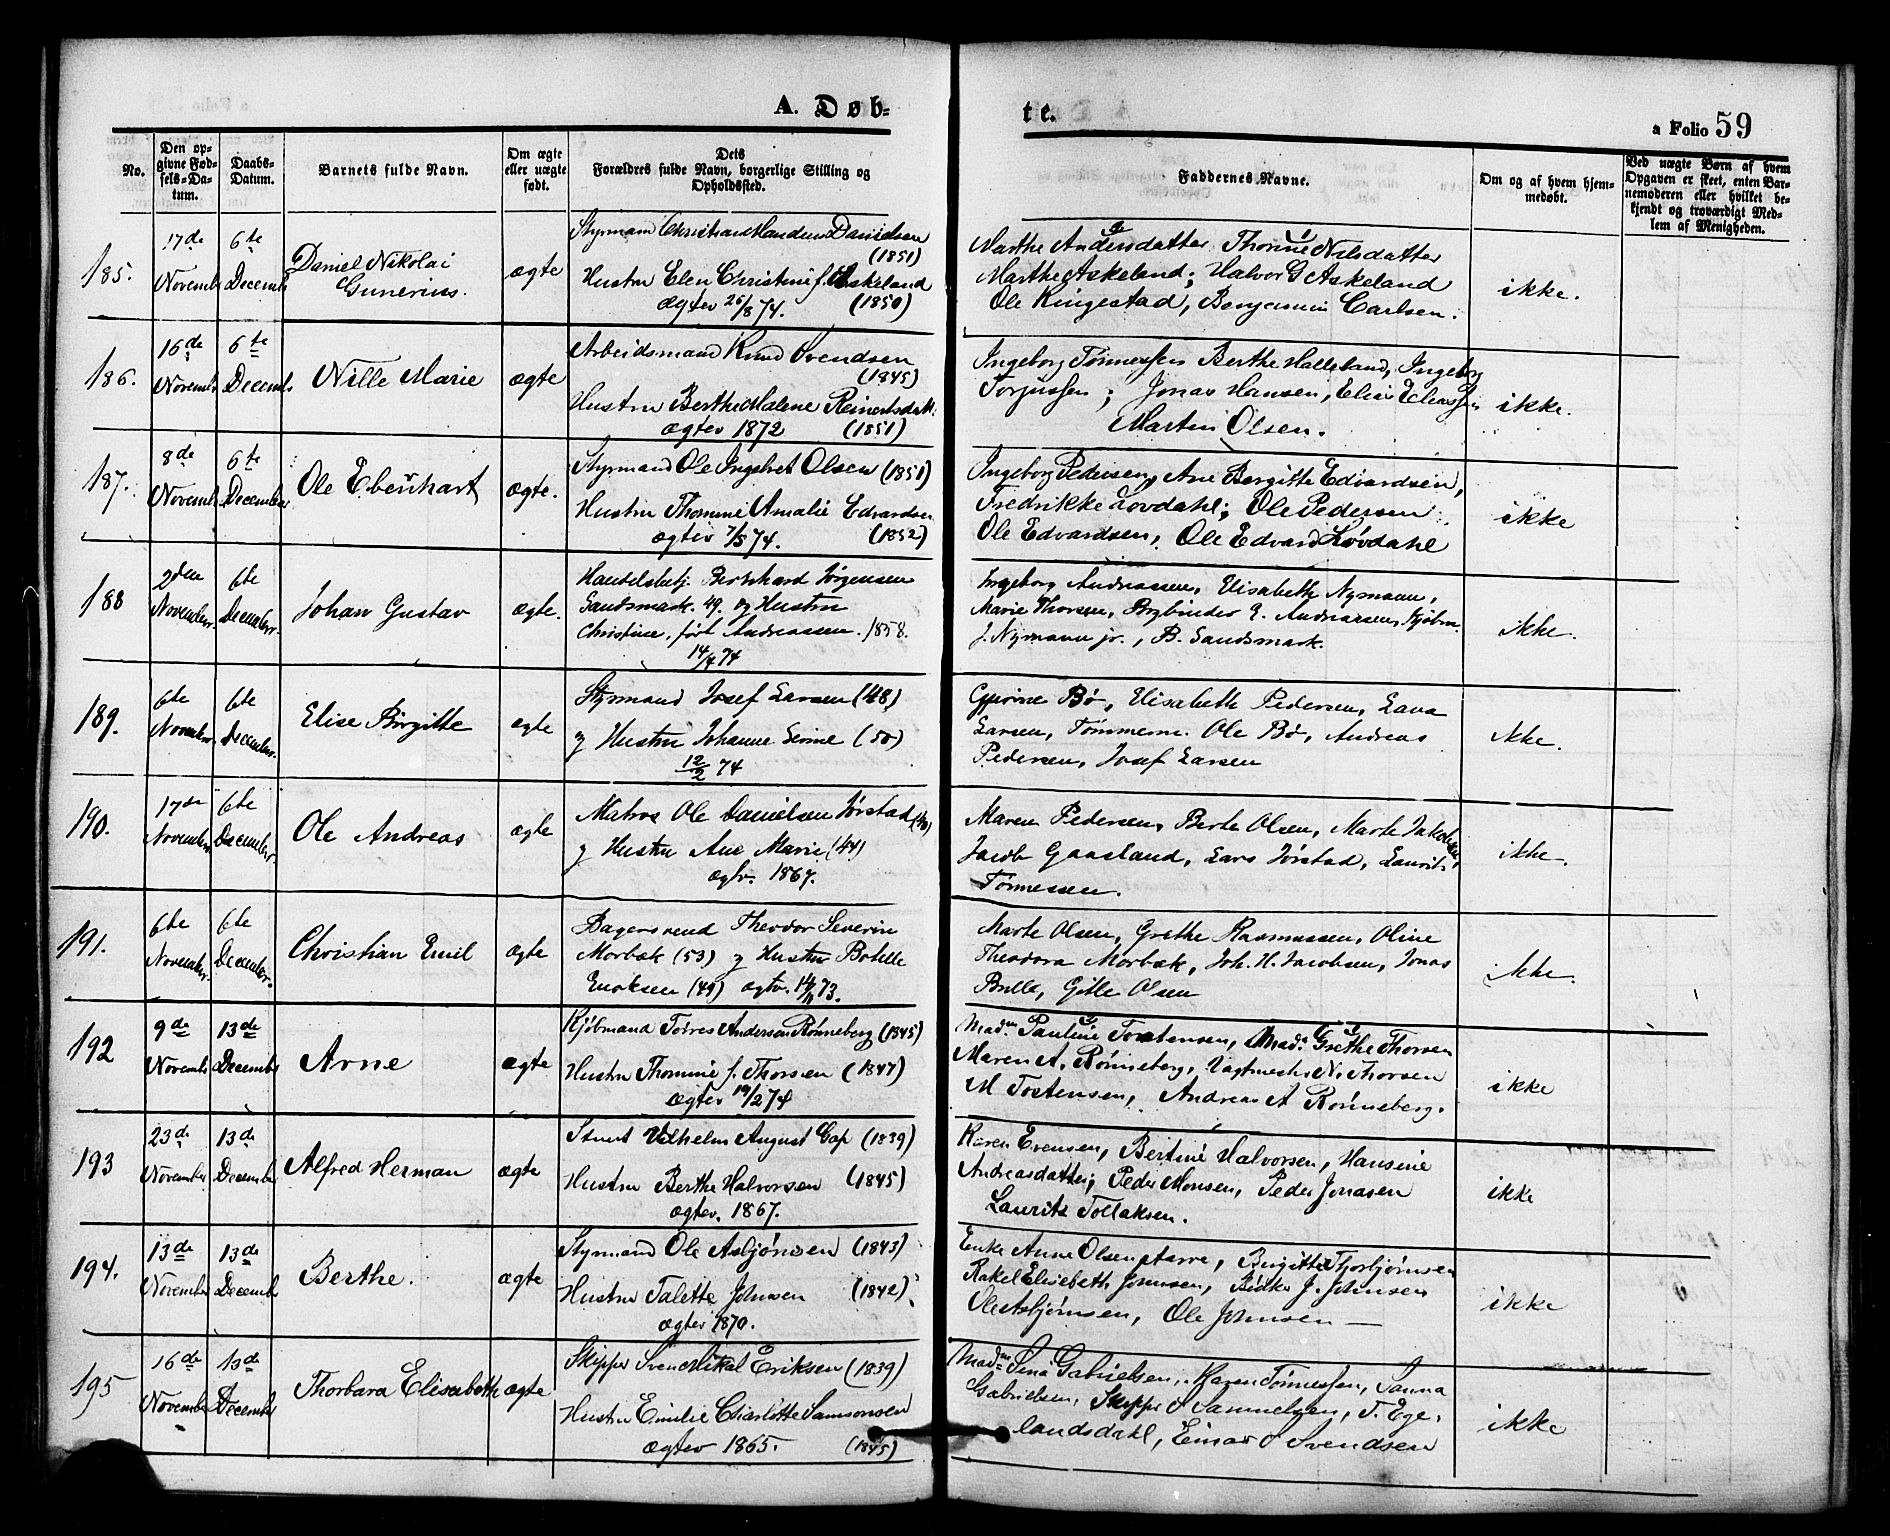 A. Døb-
te.
a Folio 59
No.
Den op-
givne Fød-
sels-Da-
tum.
Daabs-
Datum.
Barnets fulde Navn.
Om ægte
eller uægte
født.
Dets
Forældres fulde Navn, borgerlige Stilling og
Opholdssted.
Faddernes Navne.
Om og af hvem hjem-
medøbt.
Ved uægte Børn af hvem
Opgaven er skeet, enten Bar-
nemoderen eller hvilket be-
kjendt og troværdigt Med-
lem af Menigheden.
185.
17de
Novembr
6te
Decembr
Daniel Nikolai
Gunerius.
ægte
Styrmand Christian Danielsen
(1851)
Hustru Elen Christine f. Askeland
Ægtev 26/8 74. (1850)
Marthe Andersdatter, Thorine Nilsdatter
Marthe Askeland; Halvor G Askeland
Ole Ringestad, Benjamin Carlsen.
ikke.
186.
16de
Novembr
6te
Decembr
Nille Marie
ægte
Arbeidsmand Knud Svendsen
(1845)
Hustru Berthe Malene Reinertsdatt.
Ægtev 1872 (1851)
Ingeborg Tønnessen Berthe Halleland, Ingeborg
Torjussen; Jonas Hansen, Elias Eliassen
Martin Olsen.
ikke.
187.
8de
Novembr
6te
December
Ole Ebenhart
ægte.
Styrmand Ole Ingebret Olsen (1851)
Hustru Thomine Amalie Edvardsen
Ægtev 7/5 74. (1852)
Ingeborg Pedersen, Ane Bergitte Edvardsen,
Fredrikke Lovdahl; Ole Pedersen
Ole Edvardsen, Ole Edvard Løvdahl
ikke
188
2den
Novembr.
6te
Decembr.
Johan Gustav
ægte.
Handelsbetj. Bernhard Jørgensen
Sandsmark. 49. og Hustru
Christine, født Andreassen. 1858.
14/4 74
Ingeborg Andreassen, Elisabeth Nymann,
Marie Thorsen, Bogbinder E. Andreassen, Kjøbm.
J. Nymann jr., B. Sandsmark.
ikke.
189.
6te
Novembr.
6te
Decembr.
Elise Birgitte
ægte
Styrmand Josef Larsen (48)
og Hustru Johanne Serine (50)
12/2 74
Gurine Bø, Elisabeth Pedersen, Lava
Larsen, Tømmerm. Ole Bø, Andreas
Pedersen, Josef Larsen
ikke.
190.
17de
Novembr.
6te
Decembr.
Ole Andreas
ægte
Matros Ole Danielsen Jørstad (40)
og Hustru Ane Marie (44)
Ægtv. 1867.
Maren Pedersen, Berte Olsen, Marte Jakobsen,
Jacob Gaasland, Lars Jørstad, Laurits
Tønnessen.
ikke.
191.
6te
Novembr.
6te
Decembr.
Christian Emil
ægte
Bagersvend Theodor Severin
Morbæk (53) og Hustru Botelle
Enoksen (49) ægtv. 14/11 73.
Marte Olsen, Grethe Rasmussen, Oline
Theodora Morbæk, Joh. H. Jacobsen, Jonas
Brelle, Gitle Olsen
ikke.
192
9de
Novembr
13de
Decembr
Arne
ægte
Kjøbmand Torres Andersen Rønneberg (1845)
Hustru Thomine f. Thorsen (1847)
Ægtev 19/2 74
Madm Pauline Torstensen, Mada Grethe Thorsen
Maren A. Rønneberg, Vagtmester N. Thorsen
M Tostensen, Andreas A Rønneberg.
ikke
193
23de
November
13de
December
Alfred Herman
ægte
Stuert Vilhelm August Gap (1839)
Hustru Berthe Halvorsen (1845)
Ægtev. 1867.
Karen Evensen, Bertine Halvorsen, Hansine
Andreasdatter; Peder Monsen, Peder Jonasen
Laurits Tollaksen.
ikke
194.
13de
November
13de
Decembr
Berthe.
ægte
Styrmand Ole Asbjønsen (1843)
Hustru Talette Johnsen (1842)
Ægtev 1870.
Enke Anne Olsen Aarre, Birgitte Thorbjørnsen
Rakel Elisebeth Johnsen, Bødker J. Johnsen
Ole Asbjørnsen, Ole Johnsen —
ikke
195
16de
November
13de
December
Thorbara Elisabeth
ægte
Skipper Svend Mikal Eriksen (1839)
Hustru Emilie Charlotte Samsonsen
Ægtev 1865. (1845)
Madm Sina Gabrielsen, Maren Tønnessen, Sanna
Gabrielsen, Skipper S Samuelsen, T. Ege-
landsdahl, Einar S Svendsen
ikke